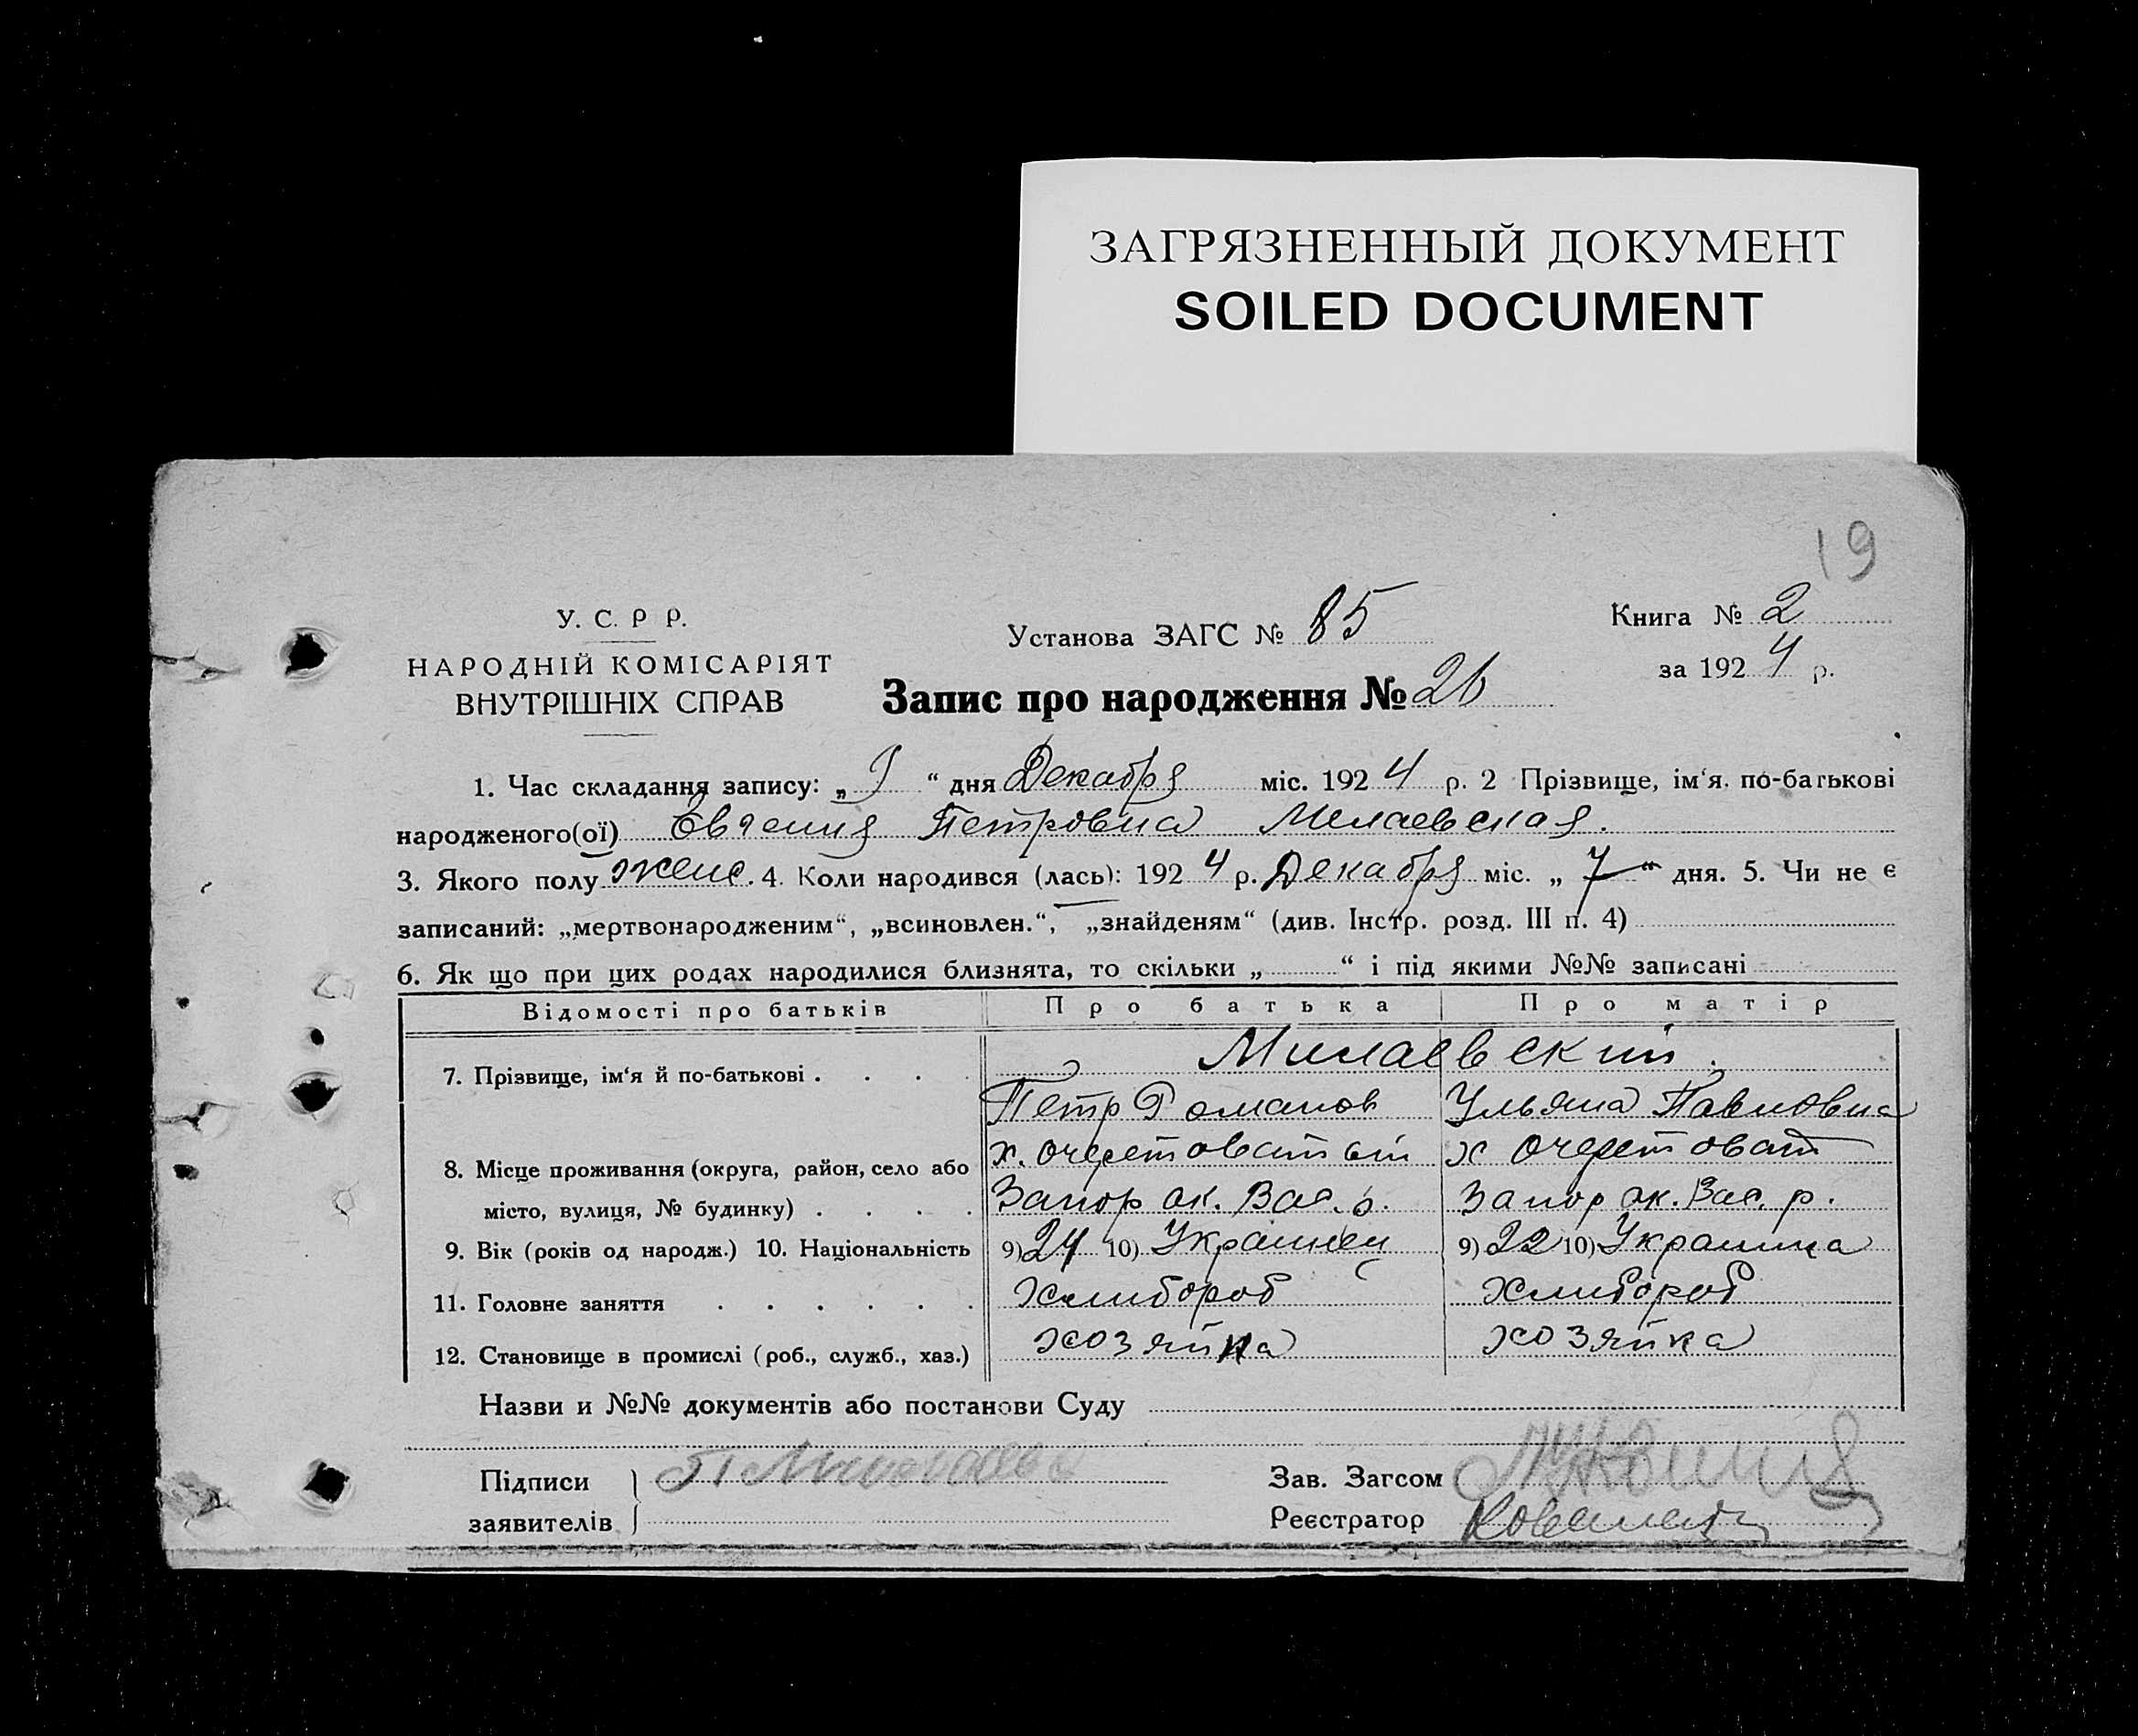 ЗАГРЯЗНЕННЫЙ ДОКУМЕНТ
SOILED DOCUMENT
19
У. С. Р Р.
НАРОДНІЙ КОМІСАРІЯТ
ВНУТРІШНІХ СПРАВ
Установа ЗАГС № 85
Книга № 2
за 1924 р.
Запис про народження № 26
1. Час складання запису: „ “ дня Декабря міс. 1924 р. 2 Прізвище, ім‘я. по-батькові
народженого(ої) Евгения Петровна Милаевская.
3. Якого полу женс. 4. Коли народився (лась): 1924 р. Декабря міс. „7“ дня. 5. Чи не є
записаний: „мертвонародженим“, „всиновлен.“, „знайденям“ (див. Інстр. розд. III п. 4)
6. Як що при цих родах народилися близнята, то скільки „ “ і під якими №№ записані
Відомості про батьків Про батька Про матір
7. Прізвище, ім‘я й по-батькові . . . . Милаевский.
Петр Романов Ульяна Павловна
х. Очеретоватый х Очеретоват
8. Місце проживання (округа, район, село або
місто, вулиця, № будинку) . . . . Запор ок. Вас. р. Запор ок. Вас. р.
9. Вік (років од народж.) 10. Національність 9) 24 10) Украинец 9) 22 10) Украинка
11. Головне заняття . . . . . . Хлибороб Хлибороб
12. Становище в промислі (роб., служб., хаз.) хозяйка хозяйка
Назви и №№ документів або постанови Суду
Підписи
заявителів
Зав. Загсом
Реєстратор